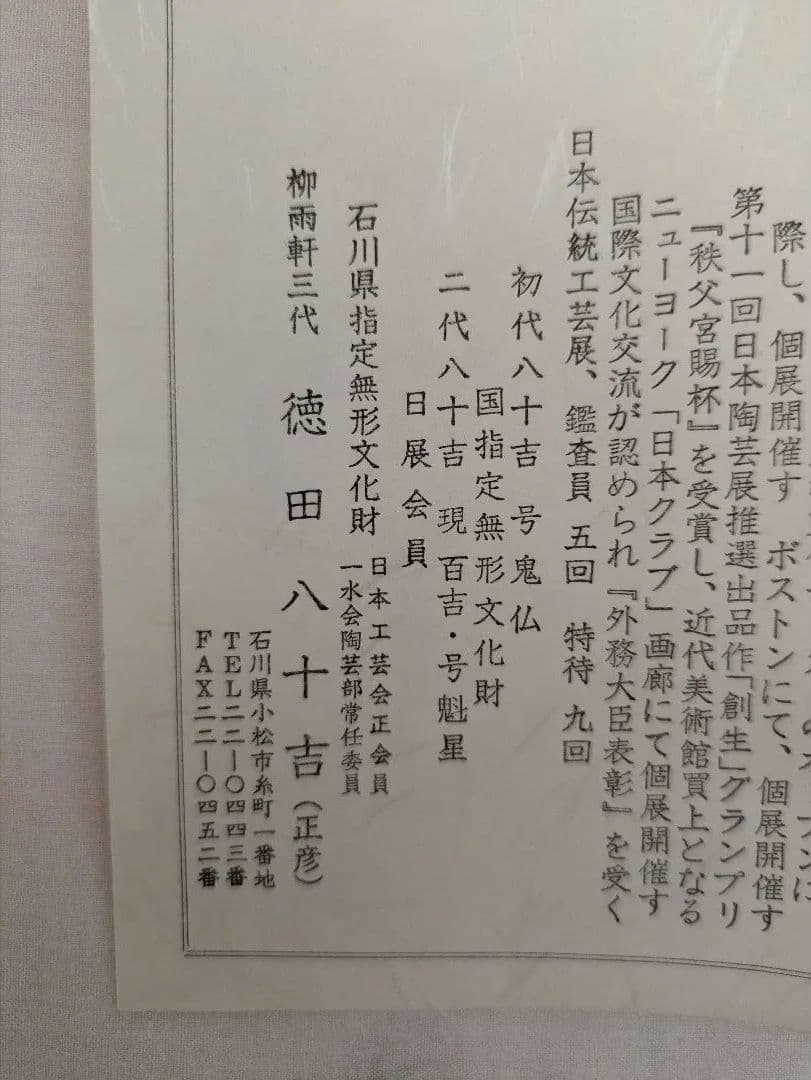 際し、個展開催す ボストンにて、個展開催す
第十一回日本陶芸展推選出品作「創生」グランプリ
『秩父宮賜杯』を受賞し、近代美術館買上となる
ニューヨーク「日本クラブ」画廊にて個展開催す
国際文化交流が認められ『外務大臣表彰』を受く
日本伝統工芸展、鑑査員 五回 特待 九回
初代八十吉 号鬼仏
国指定無形文化財
二代八十吉 現百吉・号魁星
日展会員
石川県指定無形文化財
日本工芸会正会員
一水会陶芸部常任委員
柳雨軒三代 徳田八十吉(正彦)
石川県小松市糸町一番地
TEL二二―〇四四三番
FAX二二―〇四五二番